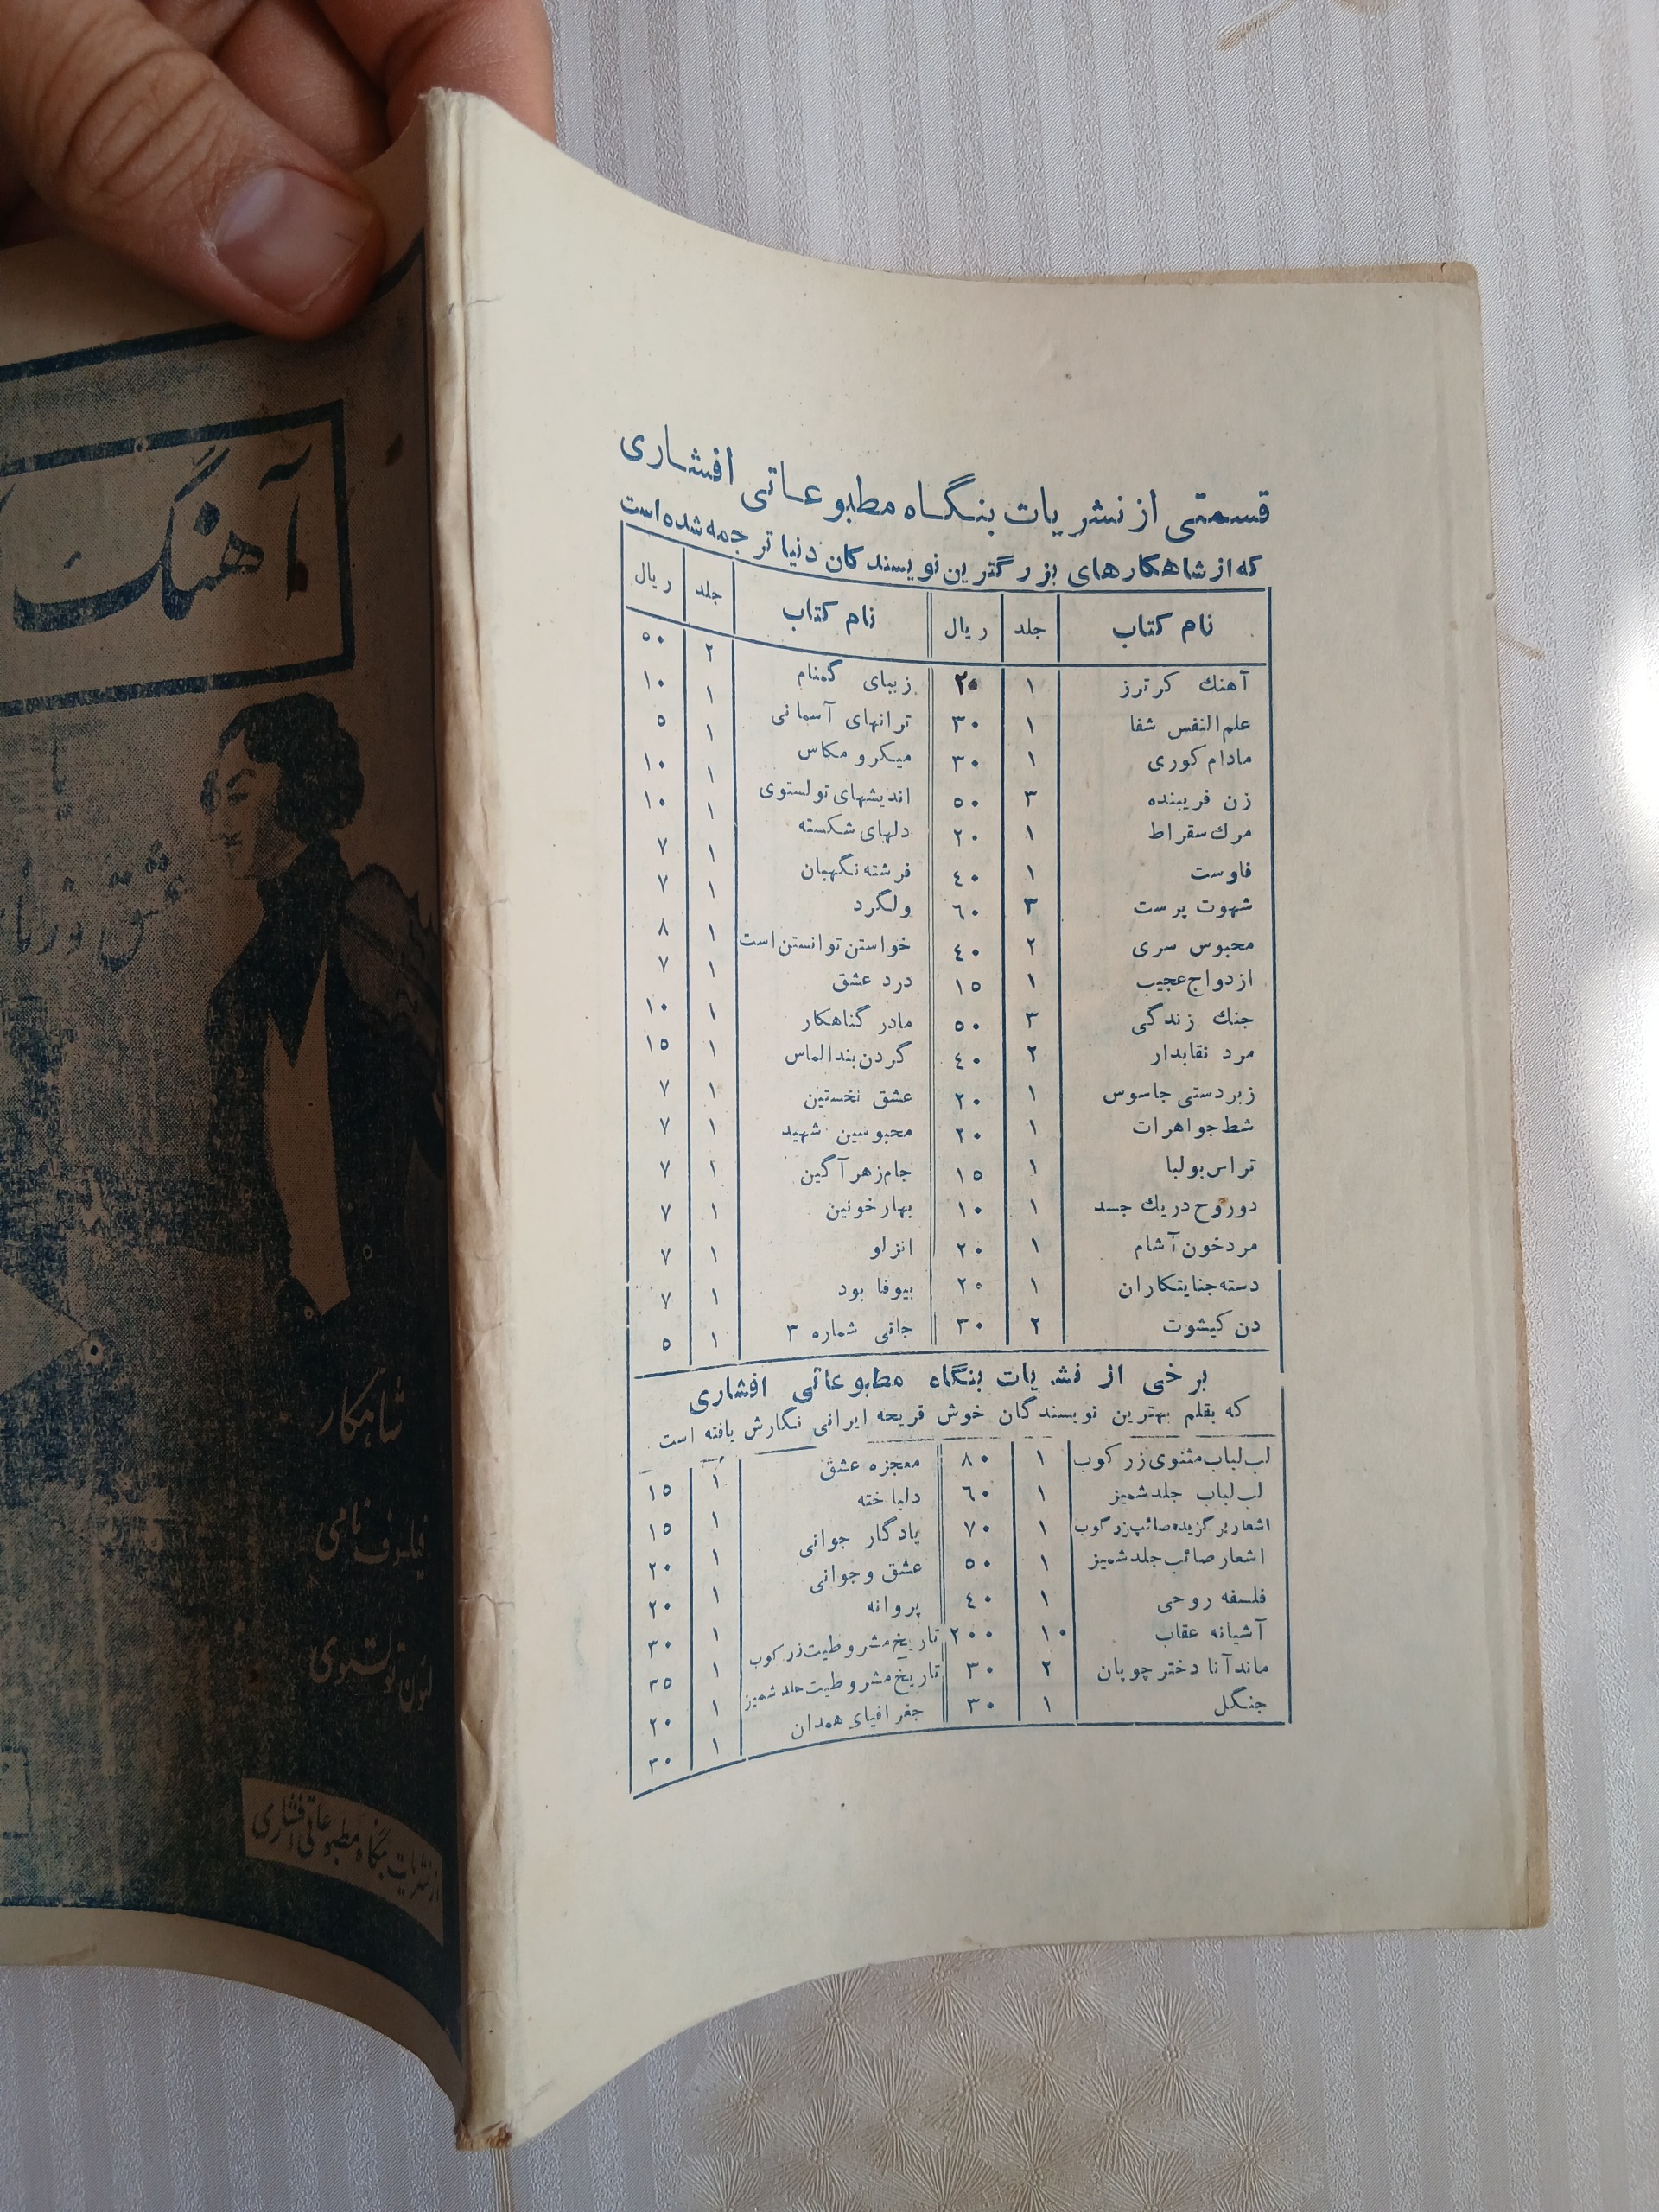 قسمتی از نشریات بنگاه مطبوعاتی افشاری
که از شاهکارهای بزرگترین نویسندگان دنیا ترجمه شده است
نام کتاب جلد ریال نام کتاب جلد ریال
آهنك کرتزر ۱ ۲۰ زیبای گمنام ۲ ۵۰
علم النفس شفا ۱ ۳۰ ترانهای آسمانی ۱ ۱۰
مادام کوری ۱ ۳۰ میکرو مکاس ۱ ۵
زن فریبنده ۳ ۵۰ اندیشهای تولستوی ۱ ۱۰
مرك سقراط ۱ ۲۰ دلهای شکسته ۱ ۱۰
فاوست ۱ ۴۰ فرشته نگهبان ۱ ۷
شهوت پرست ۳ ۶۰ ولگرد ۱ ۷
محبوس سری ۲ ۴۰ خواستن توانستن است ۱ ۸
ازدواج عجیب ۱ ۱۵ درد عشق ۱ ۷
جنك زندگی ۳ ۵۰ مادر گناهکار ۱ ۱۰
مرد نقابدار ۲ ۴۰ گردن بند الماس ۱ ۱۵
زبردستی جاسوس ۱ ۲۰ عشق نخستین ۱ ۷
شط جواهرات ۱ ۲۰ محبوسین شهید ۱ ۷
تراس بولبا ۱ ۱۵ جام زهر آگین ۱ ۷
دو روح در يك جسد ۱ ۱۰ بهار خونین ۱ ۷
مرد خون آشام ۱ ۲۰ انزلو ۱ ۷
دسته جنایتکاران ۱ ۲۰ بیوفا بود ۱ ۷
دن کیشوت ۲ ۳۰ جانی شماره ۳ ۱ ۵
برخی از نشریات بنگاه مطبوعاتی افشاری
که بقلم بهترین نویسندگان خوش قریحه ایرانی نگارش یافته است
لب لباب مثنوی زرکوب ۱ ۸۰ معجزه عشق ۱ ۱۵
لب لباب جلد شمیز ۱ ۶۰ دلباخته ۱ ۱۵
اشعار برگزیده صائب زرکوب ۱ ۷۰ یادگار جوانی ۱ ۲۰
اشعار صائب جلد شمیز ۱ ۵۰ عشق و جوانی ۱ ۲۰
فلسفه روحی ۱ ۴۰ پروانه ۱ ۳۰
آشیانه عقاب ۱۰ ۲۰۰ تاریخ مشروطیت زرکوب ۱ ۳۵
ماندآنا دختر چوپان ۲ ۳۰ تاریخ مشروطیت جلد شمیز ۱ ۲۰
جنگل ۱ ۳۰ جغرافیای همدان ۱ ۳۰
آهنگ
یا
عشق زور
شاهکار
فیلسوف نامی
لئون تولستوی
از نشریات بنگاه مطبوعاتی افشاری